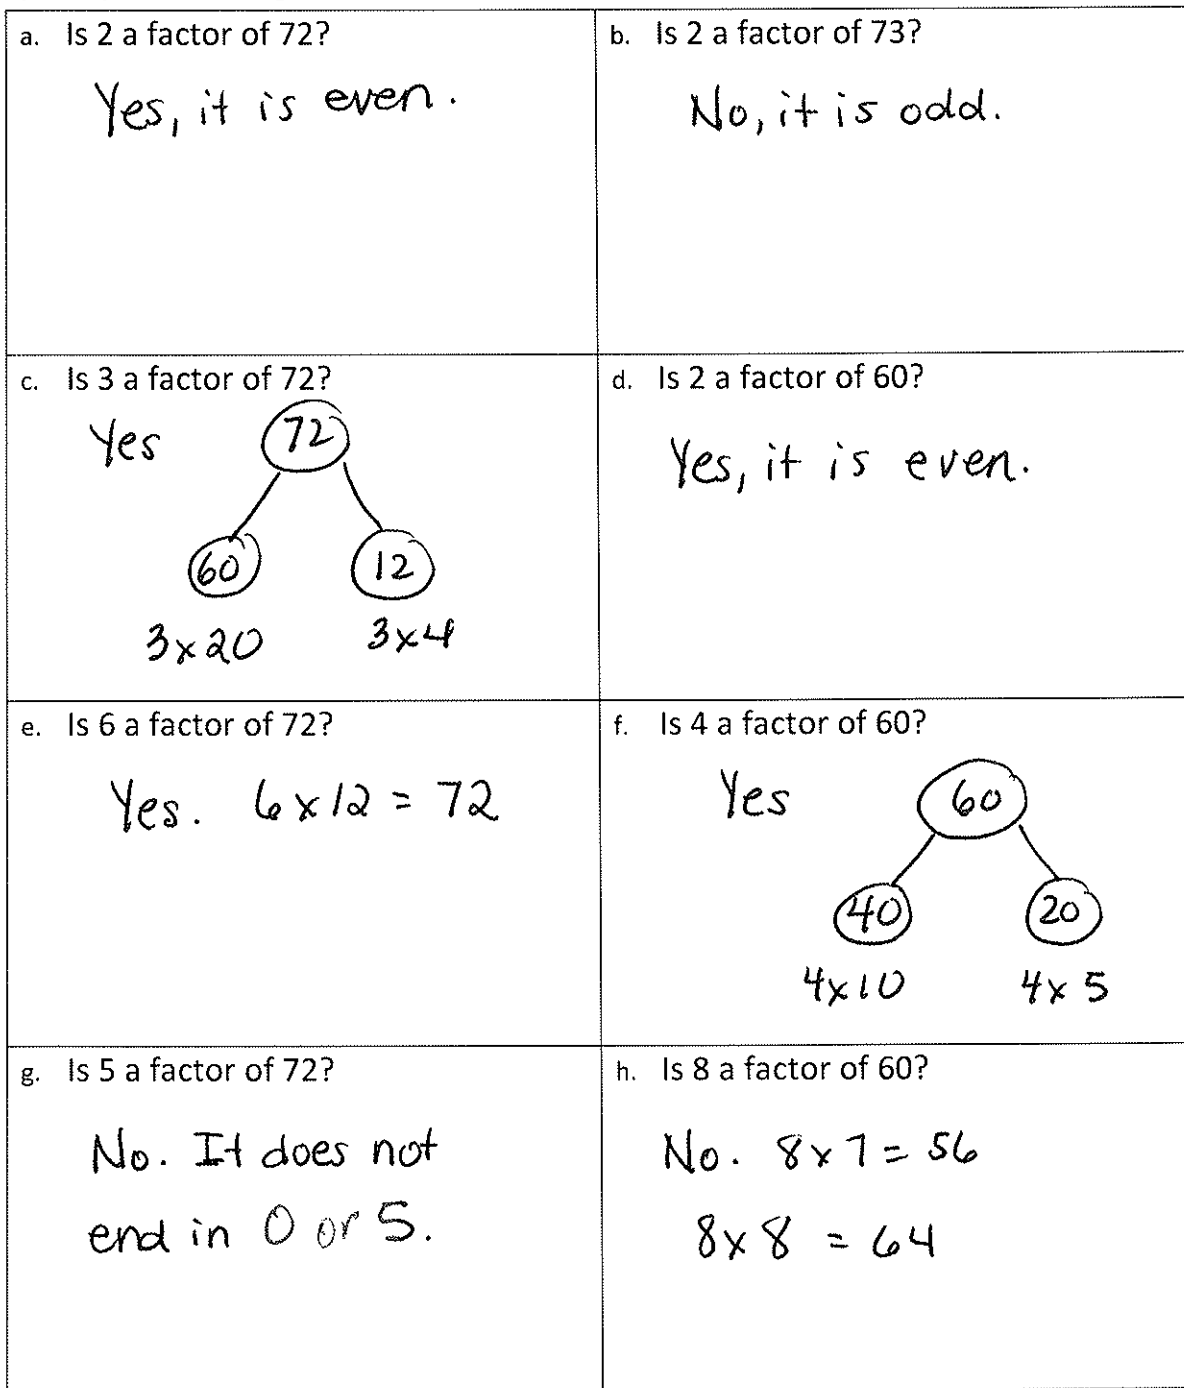 a. Is 2 a factor of 72?
Yes, it is even.
b. Is 2 a factor of 73?
No, it is odd.
c. Is 3 a factor of 72?
Yes
72
60 12
3x20 3x4
d. Is 2 a factor of 60?
Yes, it is even.
e. Is 6 a factor of 72?
Yes. 6x12 = 72
f. Is 4 a factor of 60?
Yes
60
40 20
4x10 4x5
g. Is 5 a factor of 72?
No. It does not
end in 0 or 5.
h. Is 8 a factor of 60?
No. 8x7 = 56
8x8 = 64